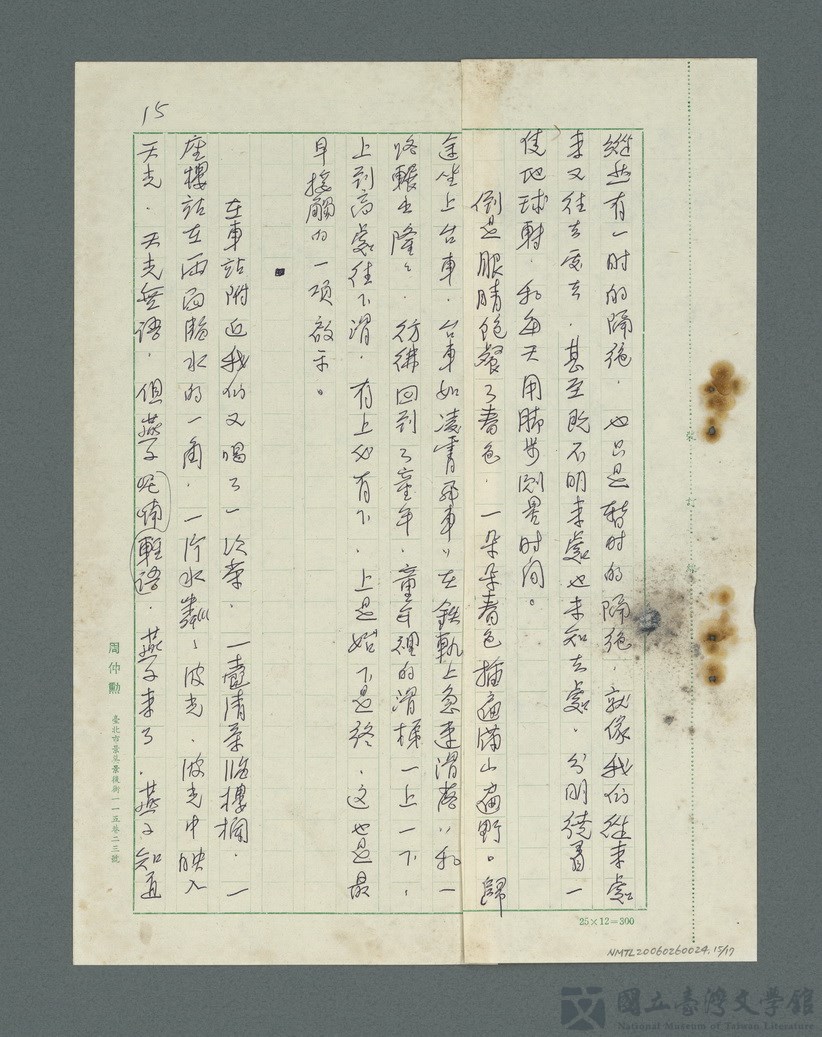 15
縱然有一时的隔绝．也只是暂时的隔绝．就像我们從来處
来又往去處去．甚至既不明来處也未知去處．分明繞着一
隻地球轉．和每天用脚步测量时间。
倒是眼睛飽餐了春色．一朵朵春色插遍满山遍野。歸
途坐上台車．台車如凌霄飛車，在鉄軌上急速滑落，和一
路轆土隆隆．彷彿回到了童年．童年裡的滑梯一上一下．
上到高處往下滑．有上必有下．上是始下是终．这也是最
早接觸的一项啟示。
在車站附近我们又喝了一次茶．一壺清茶临樓欄．一
座樓站在两面臨水的一角．一泓水粼粼波光．波光中映入
天光．天光無语．但燕子呢喃輕语．燕子来了．燕子知道
周仲勳
臺北市景美景後街一一五巷二三號
25×12=300
NMTL20060260024.15/17
國立臺灣文學館
National Museum of Taiwan Literature